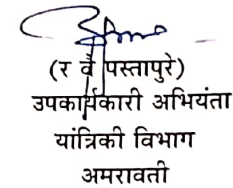 (र वै पस्तापुरे)
उपकार्यकारी अभियंता
यांत्रिकी विभाग
अमरावती